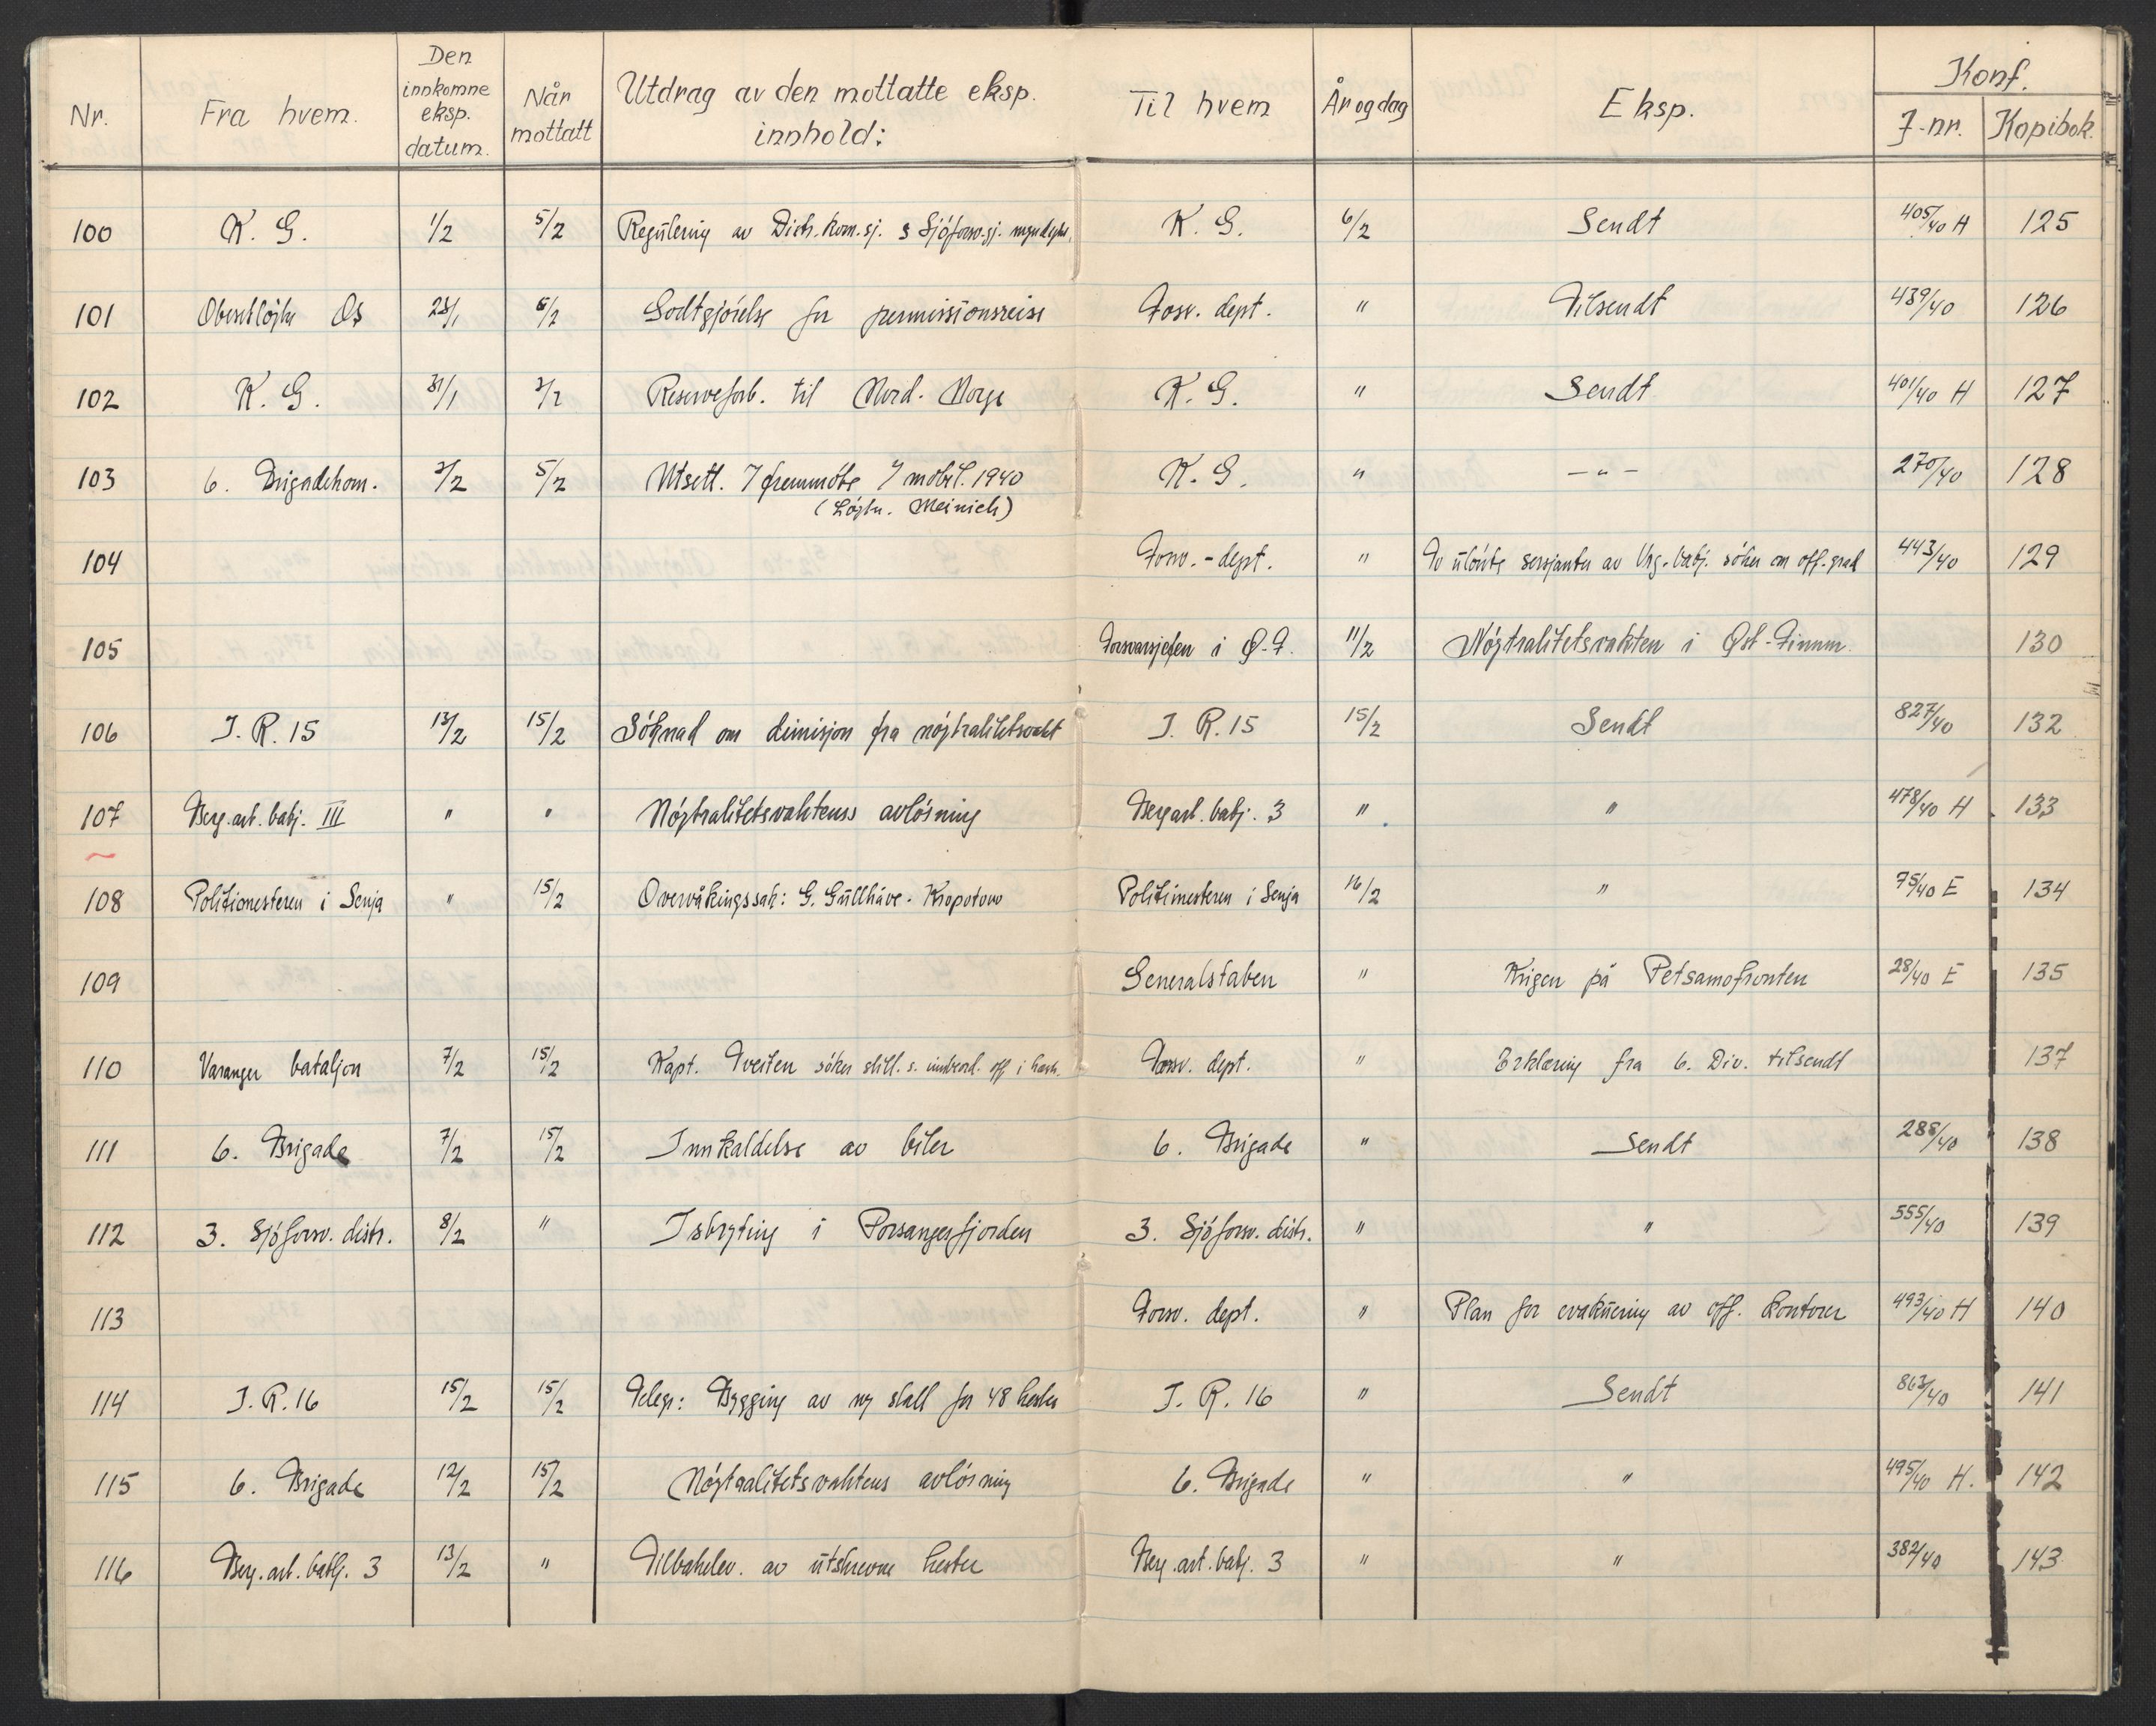 Nr. Fra hvem. Den innkomne eksp. datum. Når mottatt Utdrag av den mottatte eksp. innhold: Til hvem År og dag Eksp. Konf. J-nr. Kopibok.
100 K. G. 1/2 5/2 Regulering av Distr.kom.sj. s Sjöforsv.sj. K. G. 6/2 Sendt 405/40 H 125
101 Oberstlöjtn Os 23/1 6/2 Godtgjörelse for permissionsreise Forsv. dept. " Tilsendt 439/40 126
102 K. G. 31/1 3/2 Reserveforb. til Nord-Norge K. G. " Sendt 401/40 H 127
103 6. Brigadekom. 3/2 5/2 Utsett. 7 fremmöte 7 mobil. 1940 K. G. " - " - 270/40 128
(Löjtn. Meinich)
104 Forsv.-dept. " To ulönte sersjanter av Vrg. batj. söker om off.-grad 443/40 129
105 Forsvarsjefen i Ø-F. 11/2 Nöjtralitetsvakten i Øst-Finnm. 130
106 I. R. 15 13/2 15/2 Söknad om dimisjon fra nöjtralitetsvakt I. R. 15 15/2 Sendt 827/40 132
107 Berg.art.batj. III " " Nöjtralitetsvaktens avlösning Berg art. batj. 3 " " 478/40 H 133
108 Politimesteren i Senja " 15/2 Overvåkingssak: G. Gullhåve - Kropotow Politimesteren i Senja 16/2 " 75/40 E 134
109 Generalstaben " Krigen på Petsamofronten 28/40 E 135
110 Varanger bataljon 7/2 15/2 Kapt. Tveiten söker still. s. underv. off i Forsv. dept. " Erklæring fra 6. Div. tilsendt 137
111 6. Brigade 7/2 15/2 Innkaldelse av biler 6. Brigade " Sendt 288/40 138
112 3. Sjöforsv. distr. 8/2 " Isbryting i Porsangerfjorden 3. Sjöforsv. distr. " " 555/40 139
113 Forsv. dept. " Plan for evakuering av off. kontorer 493/40 H 140
114 I. R. 16 15/2 15/2 Telegr: Bygging av ny stall for 48 hester I. R. 16 " Sendt 863/40 141
115 6. Brigade 12/2 15/2 Nöjtralitetsvaktens avlösning 6. Brigade " " 495/40 H. 142
116 Berg. art. batlj. 3 13/2 " Tilbakelev. av utskrevne hester Berg. art. batj. 3 " " 382/40 143